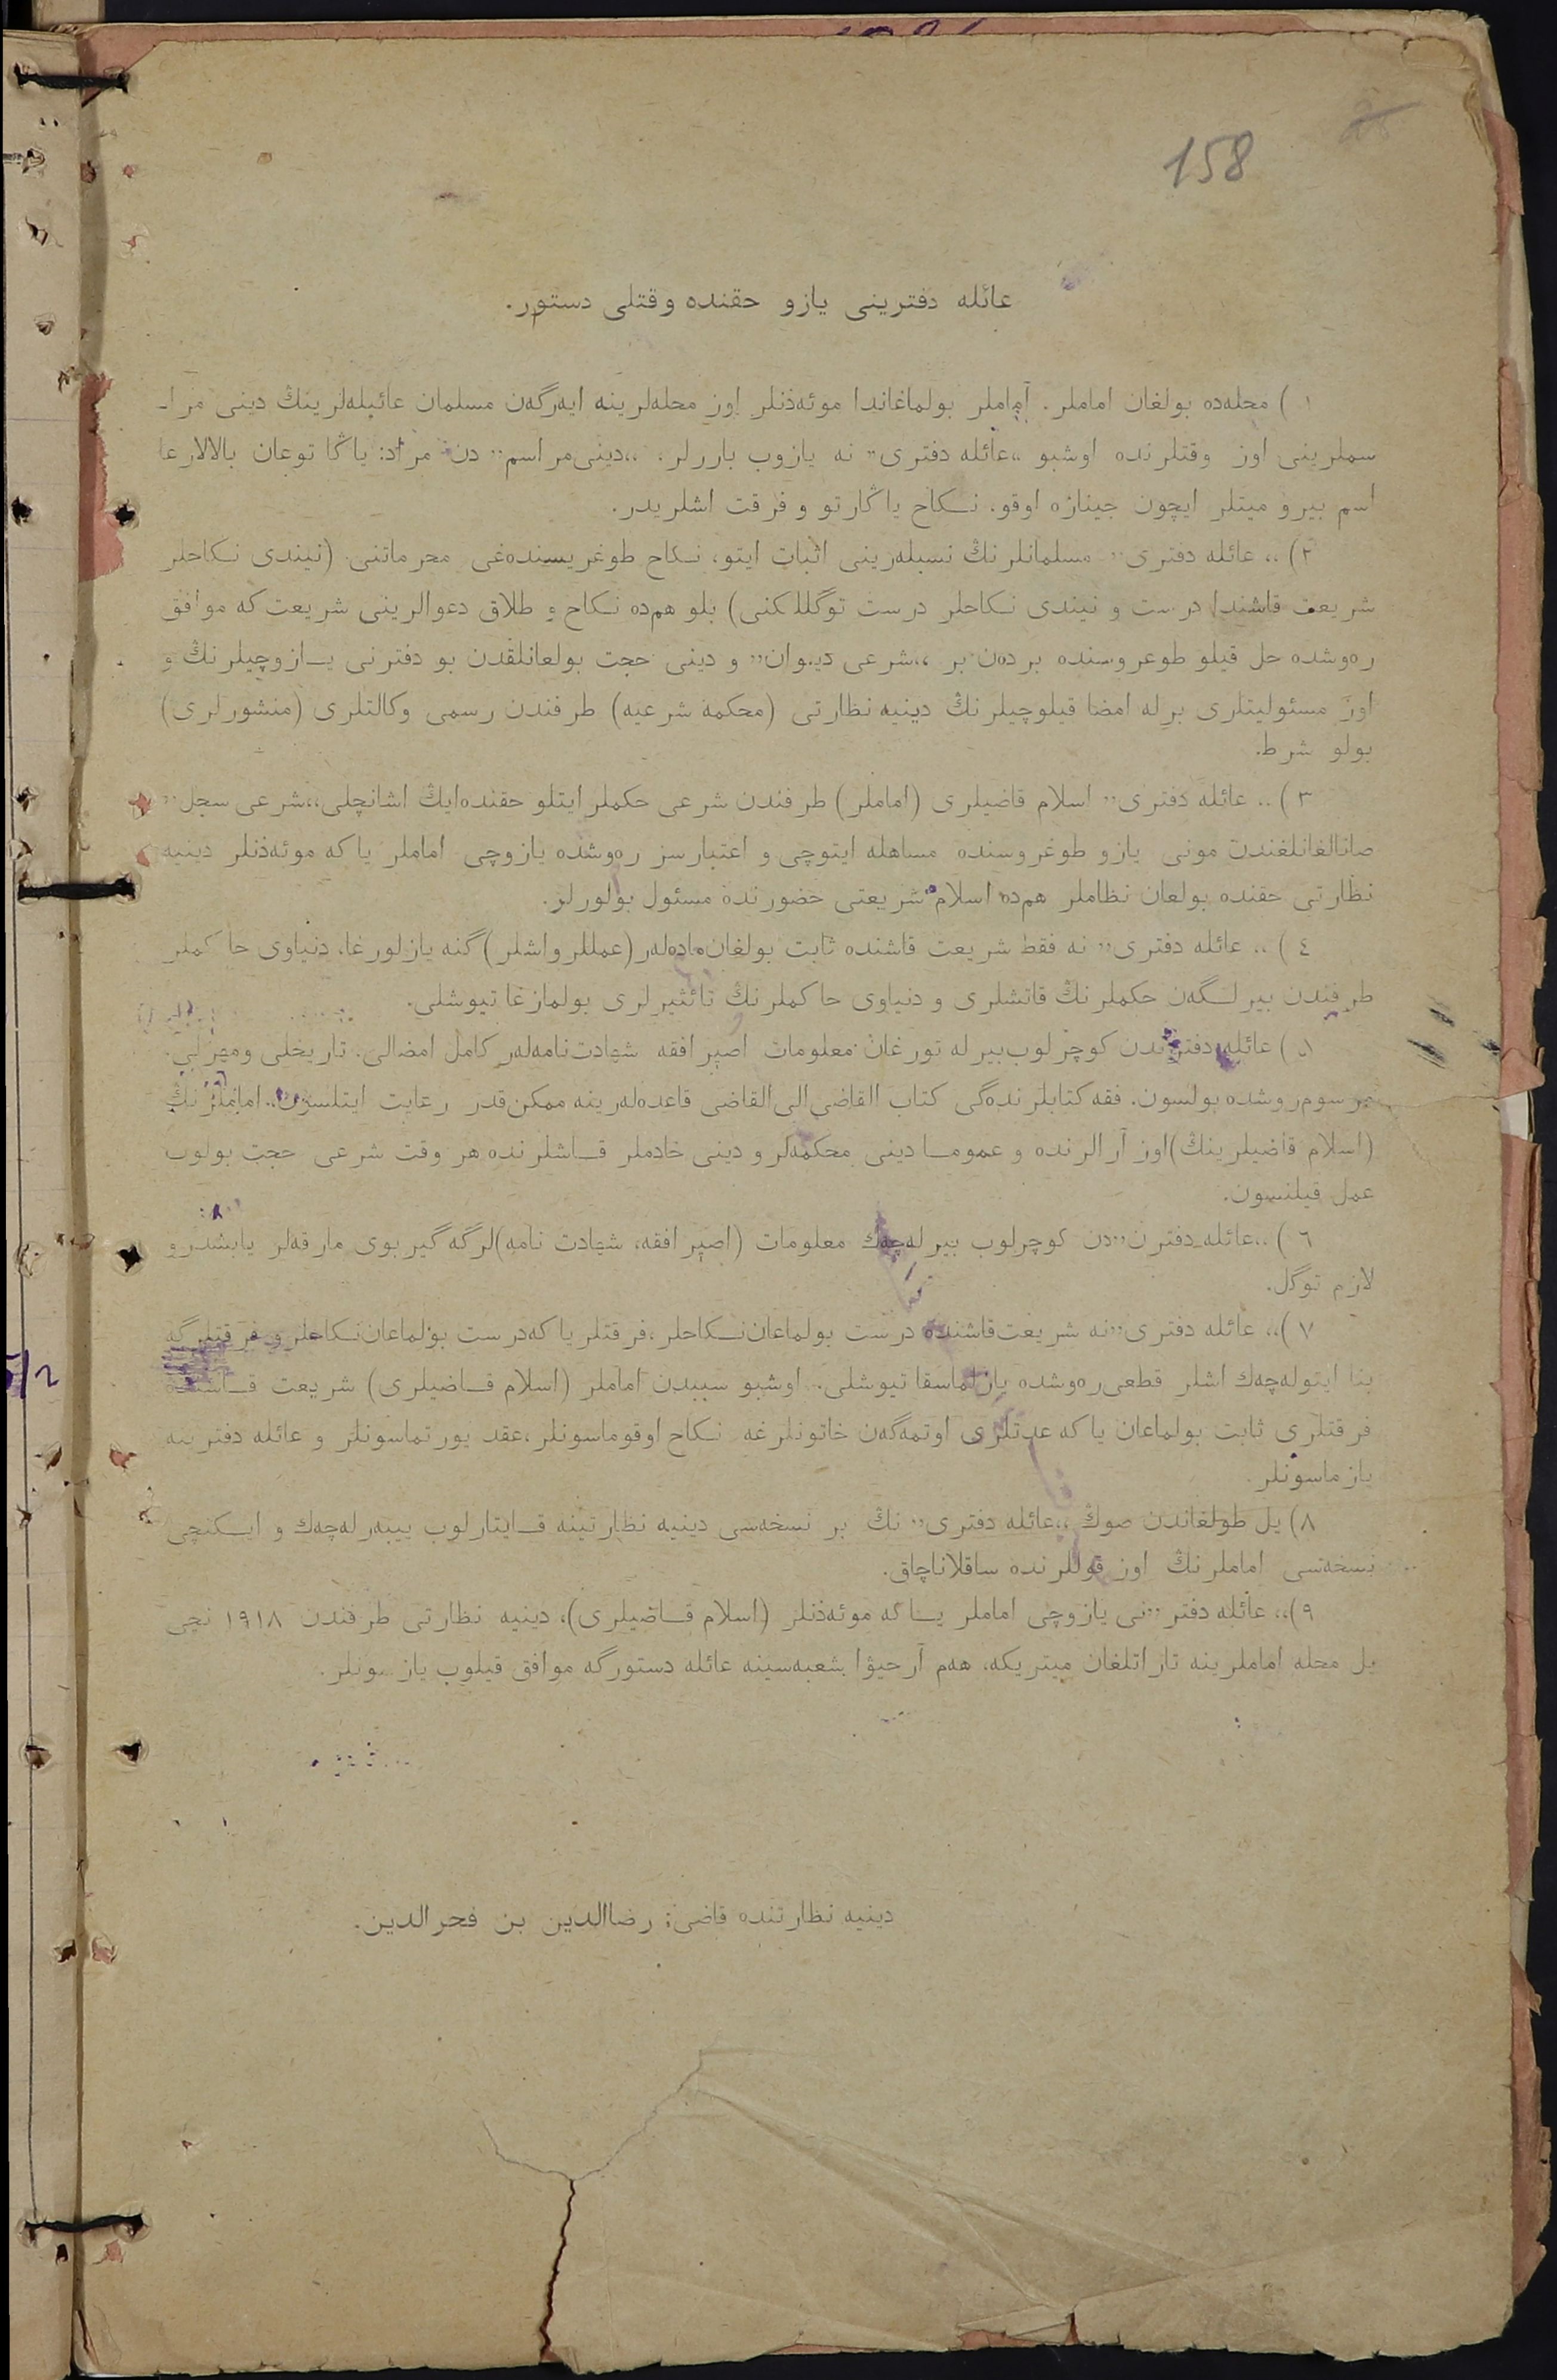 158
عائله دفترینی یازو حقنده وقتلی دستور.
١ ) محله‌ده بولغان اماملر، آماملر بولماغاندا موئه‌ذنلر اوز محله‌لرینه ایه‌رگه‌ن مسلمان عائیله‌لرینڭ دینی مرا-
سملرینی اوز وقتلرنده اوشبو „عائله دفتری” نه یازوب باررلر، „دینی مراسم” دن مراد: یاڭا توعان بالالارعا
اسم بیرو میتلر ایچون جینازه اوقو، نکاح یاڭارتو و فرقت اشلریدر.
٢) „ عائله دفتری” مسلمانلرنڭ نسبله‌رینی اثبات ایتو، نکاح طوغریسنده‌غی محرماتنی (نیندی نکاحلر
شریعت قاشندا درست و نیندی نکاحلر درست توگللکنی) بلو هم‌ده نکاح و طلاق دعوالرینی شریعت که موافق
ره‌وشده حل قیلو طوعروسنده برده‌ن بر „شرعی دیوان” و دینی حجت بولعانلقدن بو دفترنی یازوچیلرنڭ و
اوز مسئولیتلری برله امضا قیلوچیلرنڭ دینیه نظارتی (محکمهٔ شرعیه) طرفندن رسمی وکالتلری (منشورلری)
بولو شرط.
٣ ) „ عائله دفتری” اسلام قاضیلری (اماملر) طرفندن شرعی حکملر ایتلو حقنده‌ایڭ اشانچلی „شرعی سجل”
صانالغانلغندن مونی یازو طوغروسنده مساهله ایتوچی و اعتبارسز ره‌وشده یازوچی اماملر یا که موئه‌ذنلر دینیه
نظارتی حقنده بولعان نظاملر هم‌ده اسلام شریعتی حضورنده مسئول بولورلر.
٤ ) „ عائله دفتری” نه فقط شریعت قاشنده ثابت بولغان ماده‌لر(عمللر واشلر) گنه یازلورغا، دنیاوی حاکملر
طرفندن بیرلگه‌ن حکملرنڭ قاتشلری و دنیاوی حاکملرنڭ تائثیرلری بولمازغا تیوشلی.
٥ ) عائله دفترندن کوچرلوب بیرله تورغان معلومات اصپرافقه شهادت‌نامه‌لر کامل امضالی، تاریخلی ومهرلی،
مرسوم روشده بولسون. فقه کتابلرنده‌گی کتاب القاضی الی القاضی قاعده‌له‌رینه ممکن قدر رعایت ایتلسون. اماملرنڭ
(اسلام قاضیلرینڭ)اوز آرالرنده و عموما دینی محکمه‌لر و دینی خادملر قاشلرنده هر وقت شرعی حجت بولوب
عمل قیلنسون.
٦ ) „عائله دفترن”دن کوچرلوب بیرله‌چه‌ك معلومات (اصپرافقه، شهادت نامه)لرگه گیربوی مارقه‌لر یابشدرو
لازم توگل.
٧ )„ عائله دفتری”نه شریعت قاشنده درست بولماعان نکاحلر، فرقتلر یا که درست بولماعان نکاحلر و فرقتلرگه
بنا ایتوله‌چه‌ك اشلر قطعی ره‌وشده یازلماسقا تیوشلی. اوشبو سببدن اماملر (اسلام قاضیلری) شریعت قاشنده
فرقتلری ثابت بولماعان یا که عدتلری اوتمه‌گه‌ن خاتونلرغه نکاح اوقوماسونلر، عقد یورتماسونلر و عائله دفترینه
یازماسونلر.
٨) یل طولغاندن صوڭ „عائله دفتری” نڭ بر نسخه‌سی دینیه نظارتینه قایتارلوب ییبه‌رله‌چه‌ك و ایکنچی
نسخه‌سی اماملرنڭ اوز قوللرنده ساقلاناچاق.
٩)„ عائله دفتر”نی یازوچی اماملر یا که موئه‌ذنلر (اسلام قاضیلری)، دینیه نظارتی طرفندن ١٩١٨ نچی
یل محله اماملرینه تاراتلغان میتریکه، هه‌م آرحیوا شعبه‌سینه عائله دستورگه موافق قیلوب یازسونلر.
دینیه نظارتنده قاضی: رضاالدین بن فخرالدین.